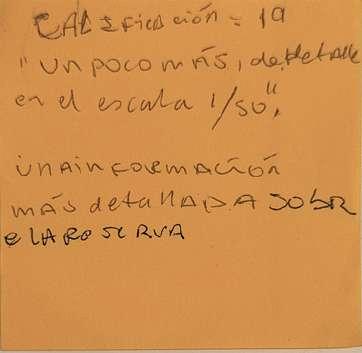 CALIFICACIÓN = 19
"UN POCO MÁS, de detalle
en el escala 1/50".
UNA INFORMACIÓN
MÁS detallADA SOBR
e LA RESERVA